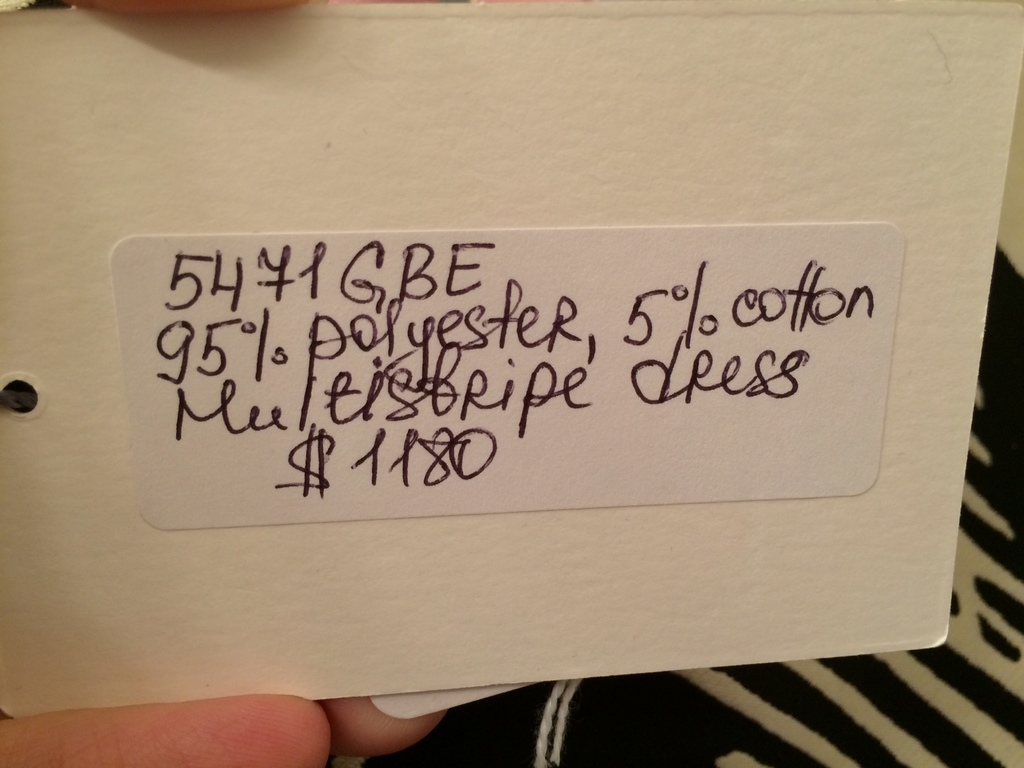 5471 GBE
95% polyester, 5% cotton
Multistripe dress
$ 1180